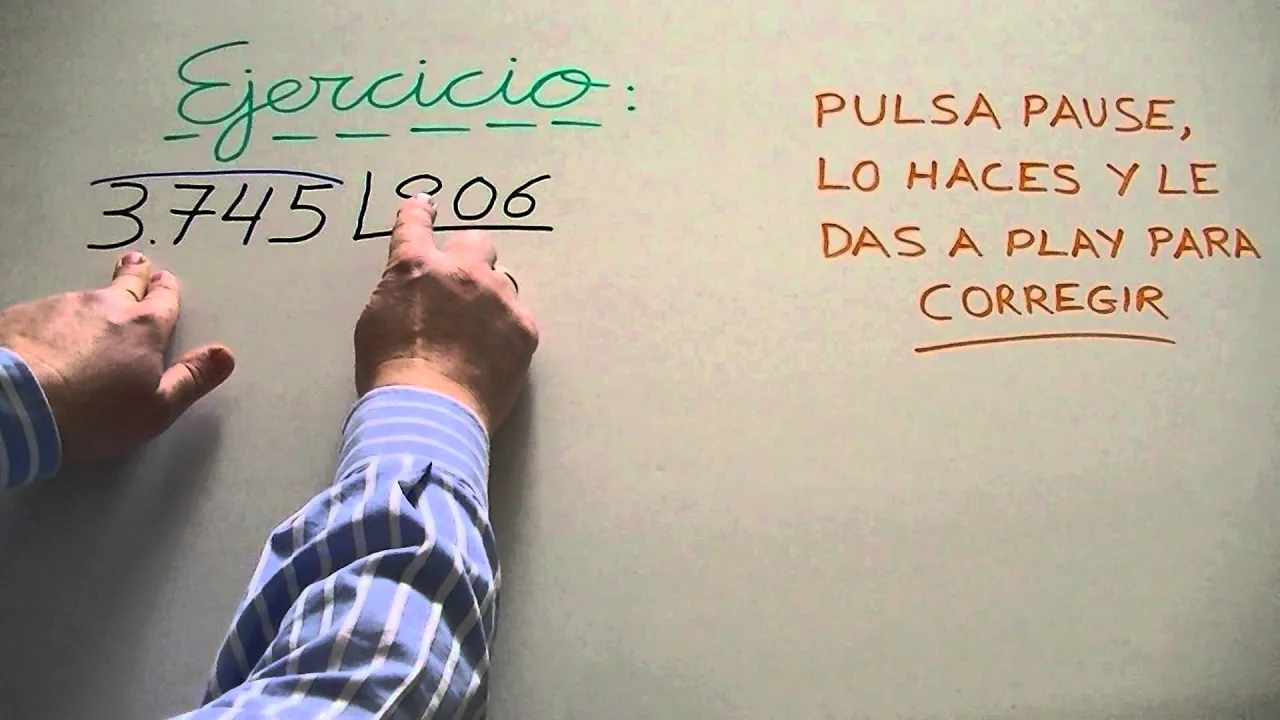 Ejercicio:
3.745 06
PULSA PAUSE,
LO HACES Y LE
DAS A PLAY PARA
CORREGIR